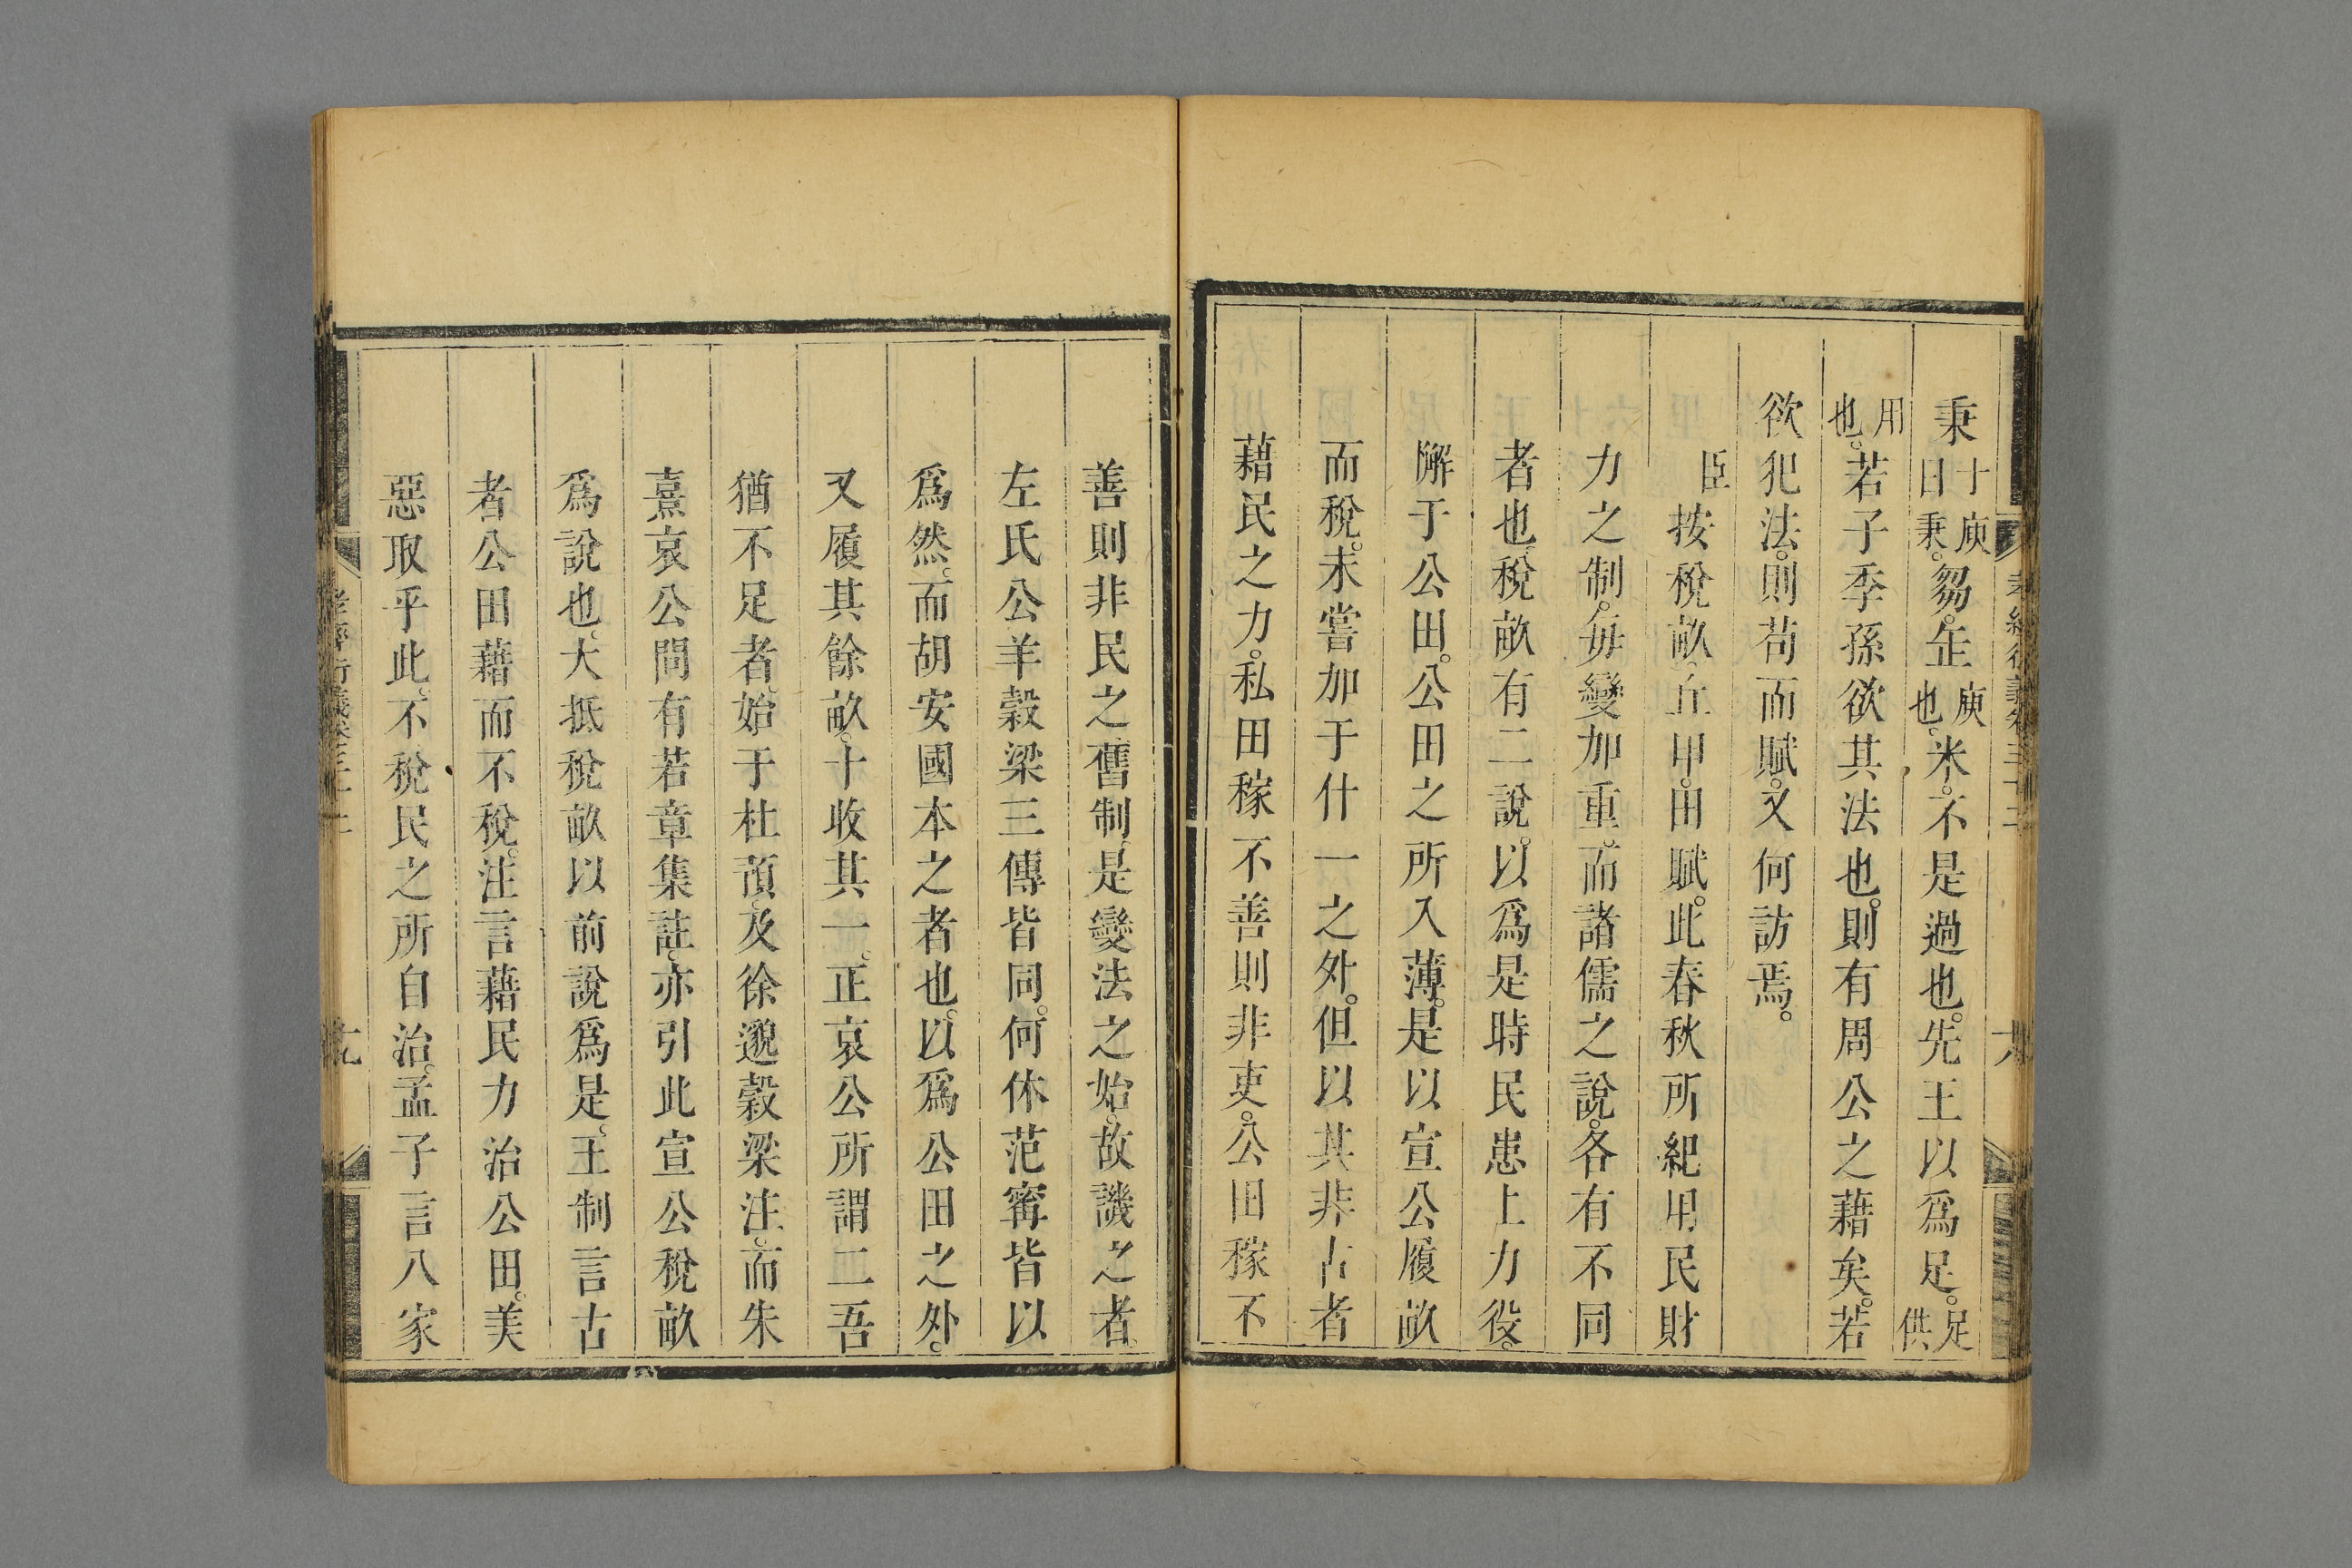 秉十庾曰秉。芻。缶庾也。米。不是過也。先王以爲足。足供
用也。若子季孫欲其法也。則有周公之藉矣。若
欲犯法。則苟而賦。又何訪焉。
臣按稅畝。丘甲。田賦。此春秋所紀用民財
力之制。毋變加重。而諸儒之說。各有不同
者也。稅畝有二說。以爲是時民患上力役。
懈于公田。公田之所入薄。是以宣公履畝
而稅。未嘗加于什一之外。但以其非古者
藉民之力。私田稼不善則非吏。公田稼不
善則非民之舊制。是變法之始。故譏之者。
左氏公羊穀梁三傳皆同。何休范甯皆以
爲然。而胡安國本之者也。以爲公田之外。
又履其餘畝。十收其一。正哀公所謂二吾
猶不足者。始于杜預。及徐邈穀梁注。而朱
熹哀公問有若章集註。亦引此宣公稅畝
爲說也。大抵稅畝以前說爲是。王制言古
者公田藉而不稅。注言藉民力治公田。美
惡取乎此。不稅民之所自治。孟子言八家